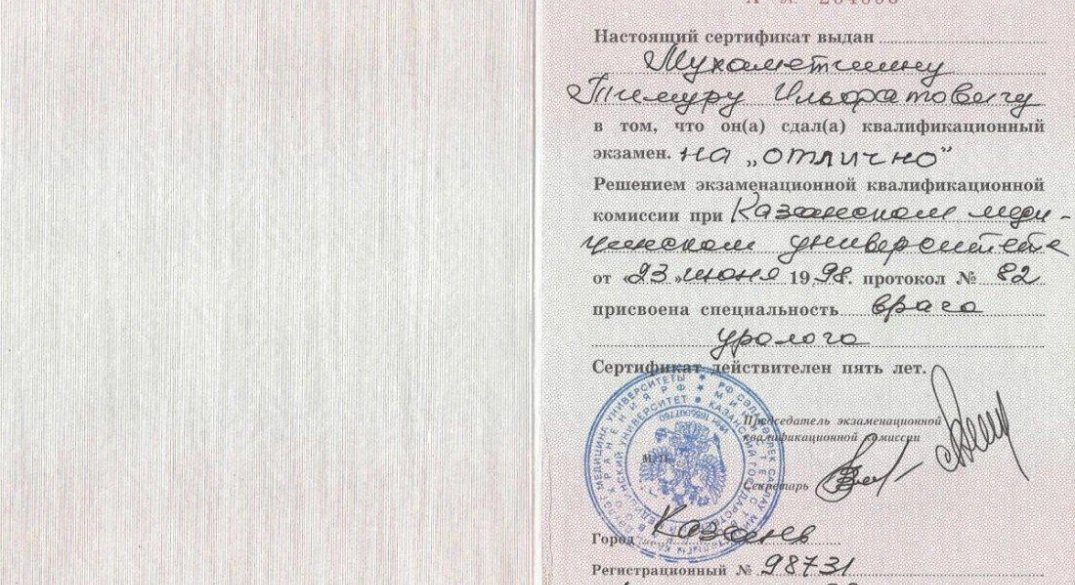 Настоящий сертификат выдан
Мухаметшину
Тимуру Ильфатовичу
в том, что он(а) сдал(а) квалификационный
экзамен. на „отлично"
Решением экзаменационной квалификационной
комиссии при Казанском меди-
цинском университета
от «23» июня 1998г. протокол № 82
присвоена специальность врача
уролога
Сертификат действителен пять лет.
Председатель экзаменационной
квалификационной комиссии
Секретарь
Город Казань
Регистрационный № 98731